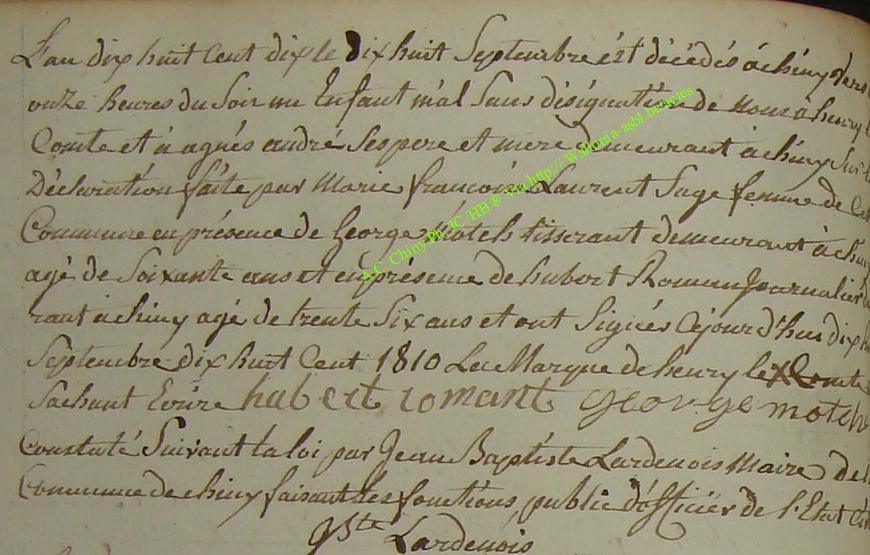 L'an dix huit Cent dix le dix huit Septembre ést décédés à chiny vers
onze heures du Soir un Enfant mal Sans désignation de Nous à henry l
Comte et à agnés andré Ses pere et mere demeurant à chiny Sur l
Déclaration faite par Marie françoise Laurent Sage femme de Cet
Commune en présence de George Motch tisserant demeurant à chiny
agé de Soixante ans et en présence de hubert Roman Journalier
rant à chiny agé de trente Six ans et ont Signiér Cejourd'hui dix
Septembre dix huit Cent 1810 La Marque de henry le X Comte
Sachant Ecrire hubert romant george motch
Constaté Suivant la loi par Jean Baptiste Lardenois Maire de
Commune de chiny faisant les fonctions public d'officiér de l'Etat Ci
Lardenois
A.C. Chiny Ph. JC HB® via http:// Wallonia-asbl.be/actes